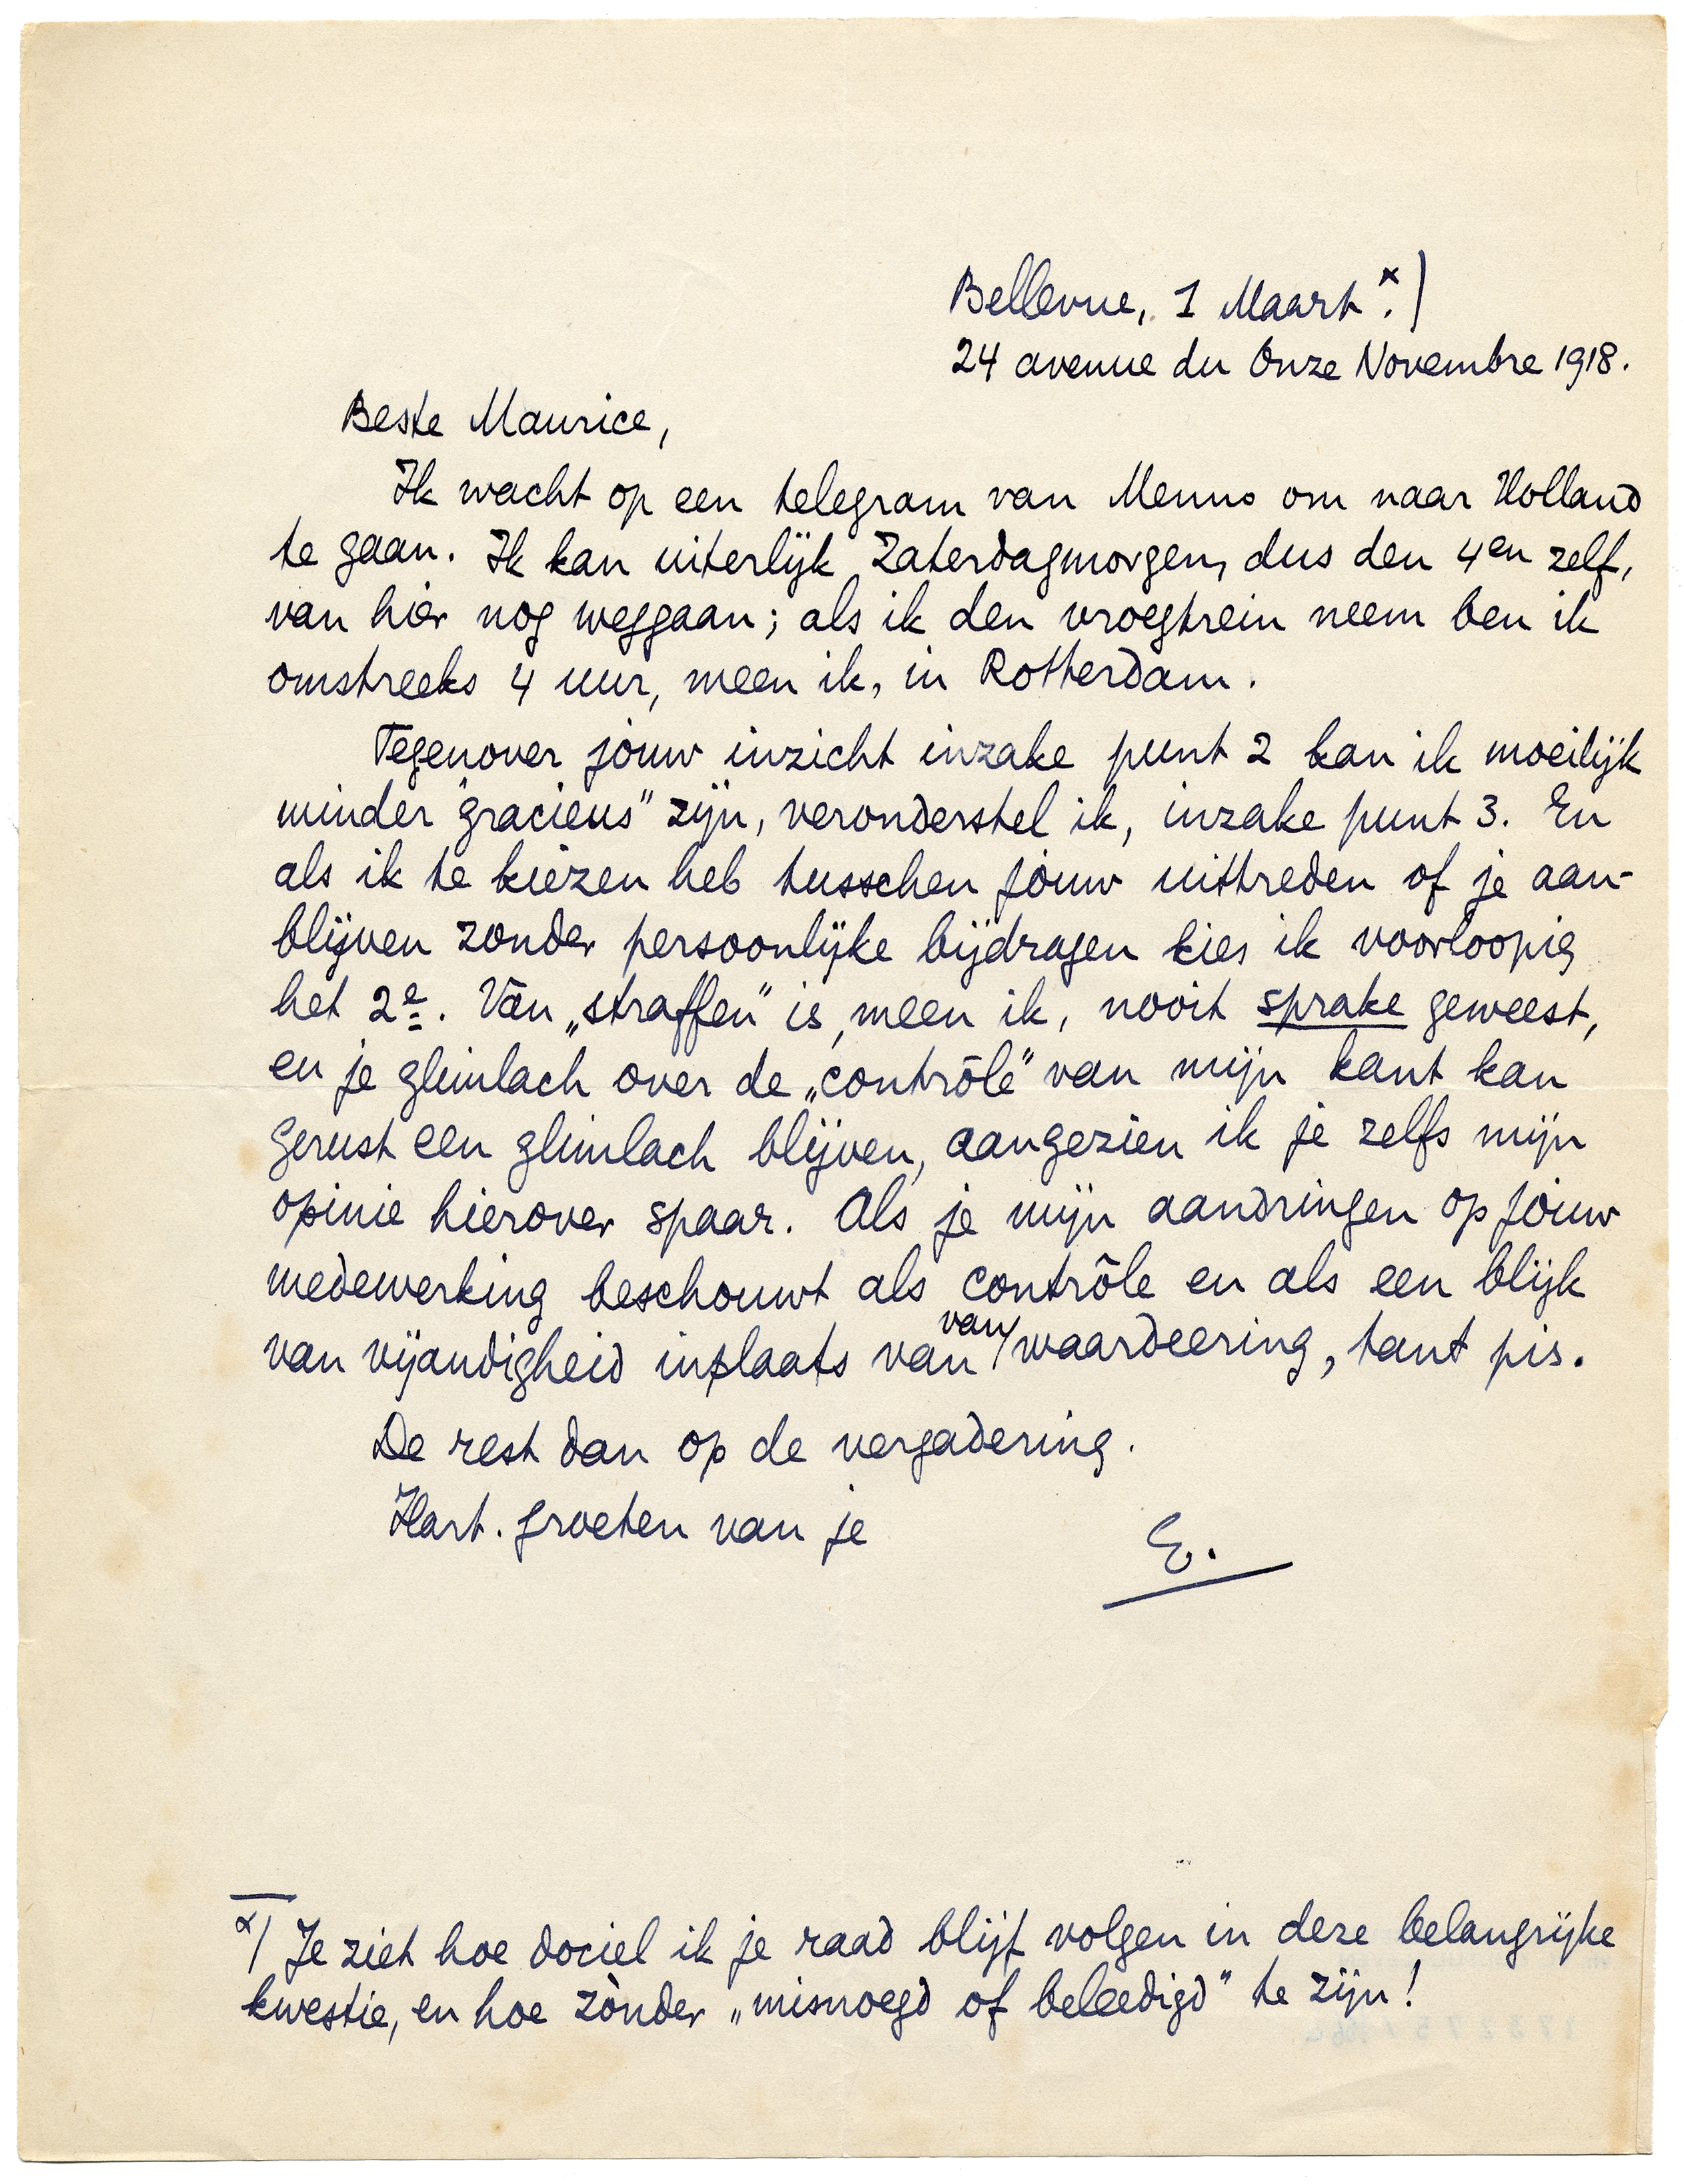 Bellevue, 1 Maart.ˣ)
24 avenue du Onze Novembre 1918.
Beste Maurice,
Ik wacht op een telegram van Menno om naar Holland
te gaan. Ik kan uiterlijk Zaterdagmorgen, dus den 4en zelf,
van hier nog weggaan; als ik den vroegtrein neem ben ik
omstreeks 4 uur, meen ik, in Rotterdam.
Tegenover jòuw inzicht inzake punt 2 kan ik moeilijk
minder "gracieus" zijn, veronderstel ik, inzake punt 3. En
als ik te kiezen heb tusschen jouw uittreden of je aan-
blijven zonder persoonlijke bijdragen kies ik voorloopig
het 2e. Van „straffen" is, meen ik, nooit sprake geweest,
en je glimlach over de „contrôle" van mijn kant kan
gerust een glimlach blijven, aangezien ik je zelfs mijn
opinie hierover spaar. Als je mijn aandringen op jouw
medewerking beschouwt als contrôle en als een blijk
van vijandigheid inplaats van van waardeering, tant pis.
De rest dan op de vergadering.
Hart. groeten van je
E.
x) Je ziet hoe dociel ik je raad blijf volgen in deze belangrijke
kwestie, en hoe zònder „misnoegd of beleedigd" te zijn!